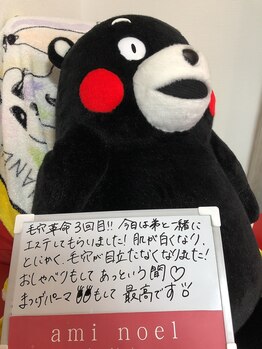 毛穴革命3回目!! 今日は弟と一緒に
エステしてもらいました! 肌が白くなり、
とにかく、毛穴が目立たなくなりました!
おしゃべりもしてあっという間♡
まつげパーマもして最高です
ami noel